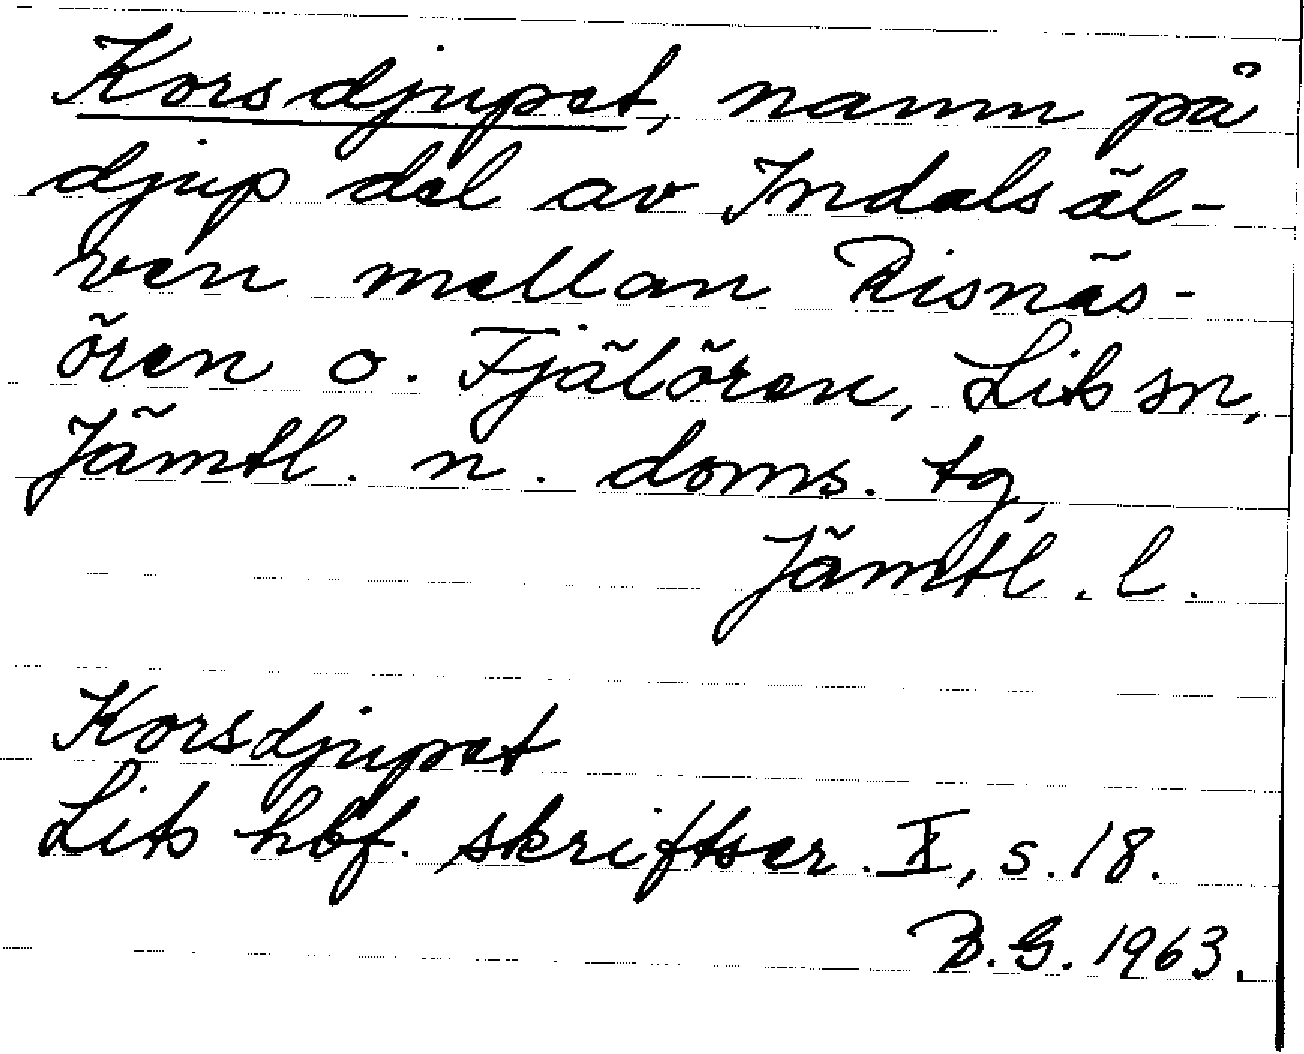 Korsdjupet, namn på
djup del av Indalsäl-
ven mellan Risnäs-
ören o. Fjälören, Lits sn,
Jämtl. n. doms. tg,
Jämtl. l.
Korsdjupet
Lits hbf. skriftser. II, s. 18.
B.G. 1963.